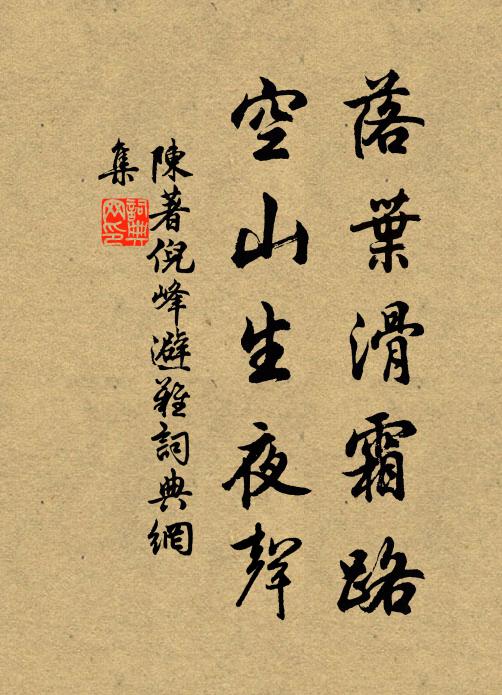 落葉滑霜路
空山生夜聲
陳著倪峰避難詞典網
集
詞典網印